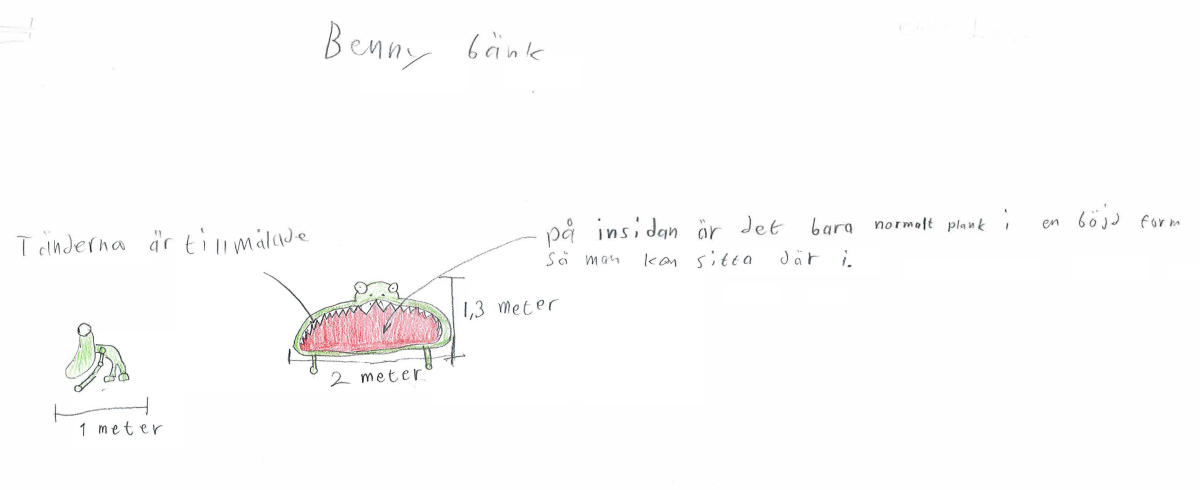 Benny bänk
Tänderna är tillmålade
på insidan är det bara normalt plank i en böjd form
Så man kan sitta där i.
1,3 meter
2 meter
1 meter